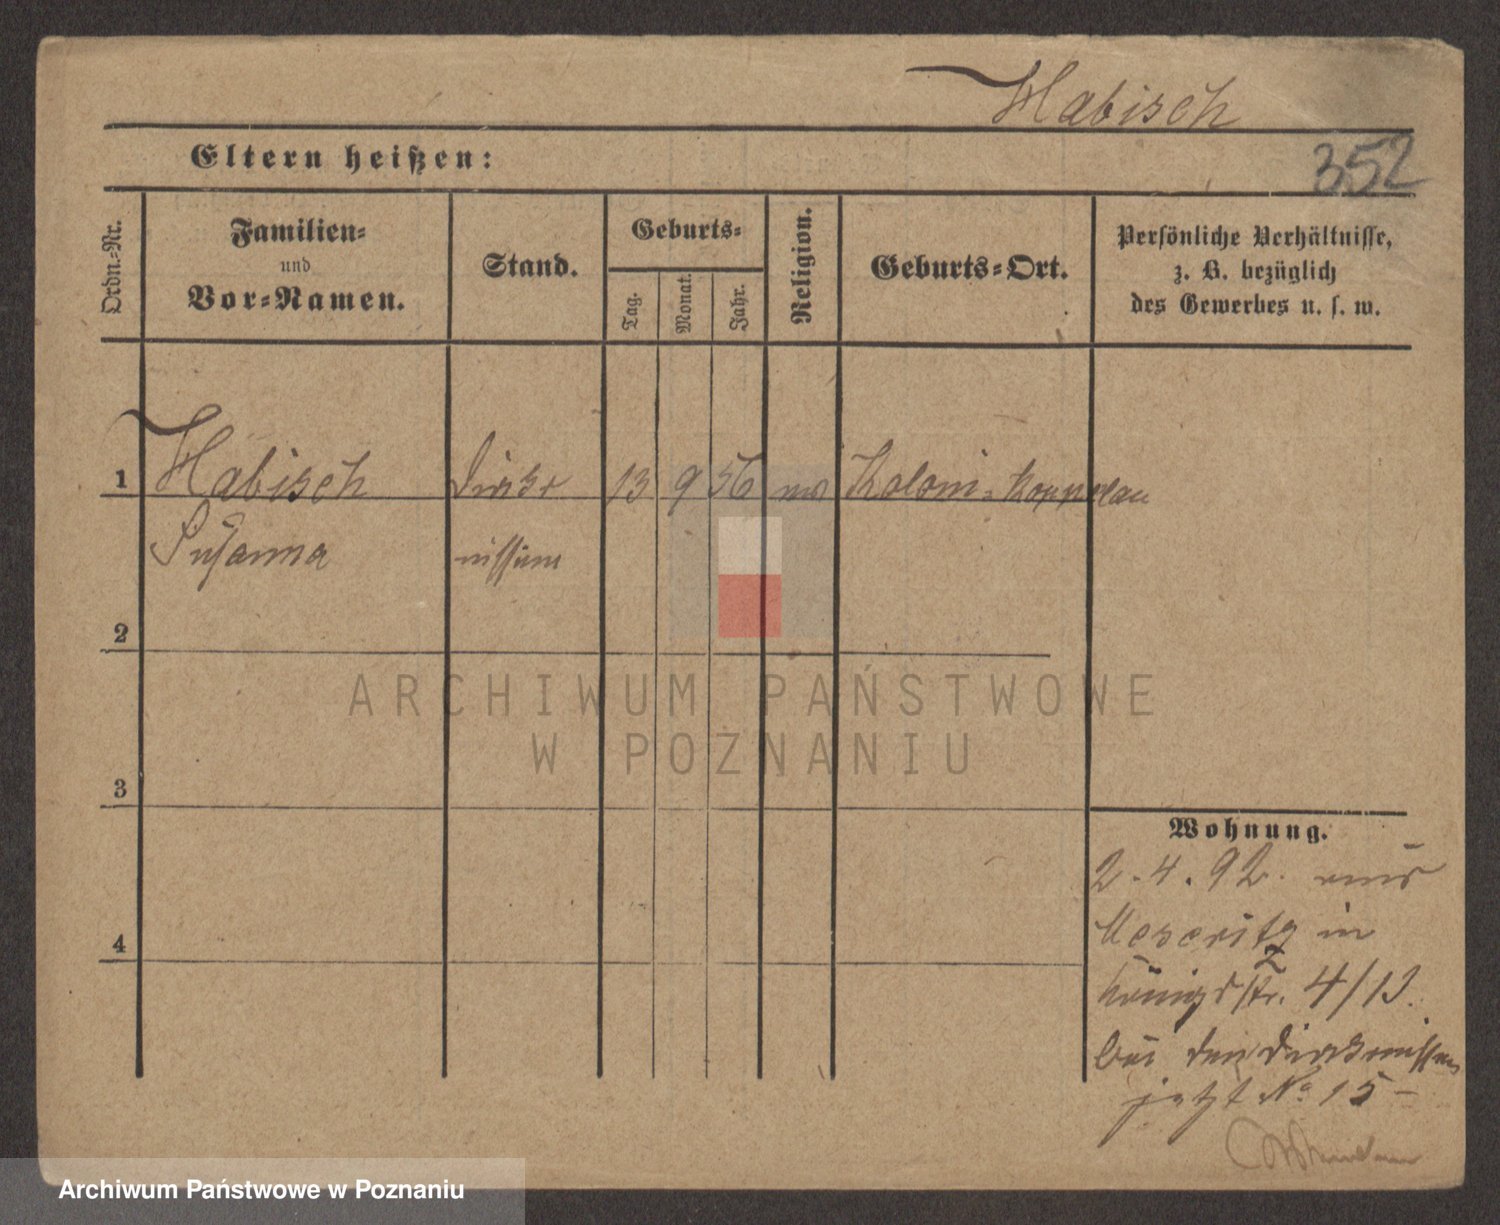 Habisch
352
Eltern heißen:
Ordn.-Nr.
Familien-
und
Vor-Namen.
Stand.
Geburts-
Tag.
Monat.
Jahr.
Religion.
Geburts-Ort.
Persönliche Verhältnisse,
z. B. bezüglich
des Gewerbes u. s. w.
1 Habisch Diako 13 9 56 Koloni-
Susanna nissin
2
3
4
ARCHIWUM PAŃSTWOWE
W POZNANIU
Wohnung.
2.4.92. aus
Meseritz in
Königsstr. 4/13.
bei den Diakonissen
jetzt No 15 -
Archiwum Państwowe w Poznaniu